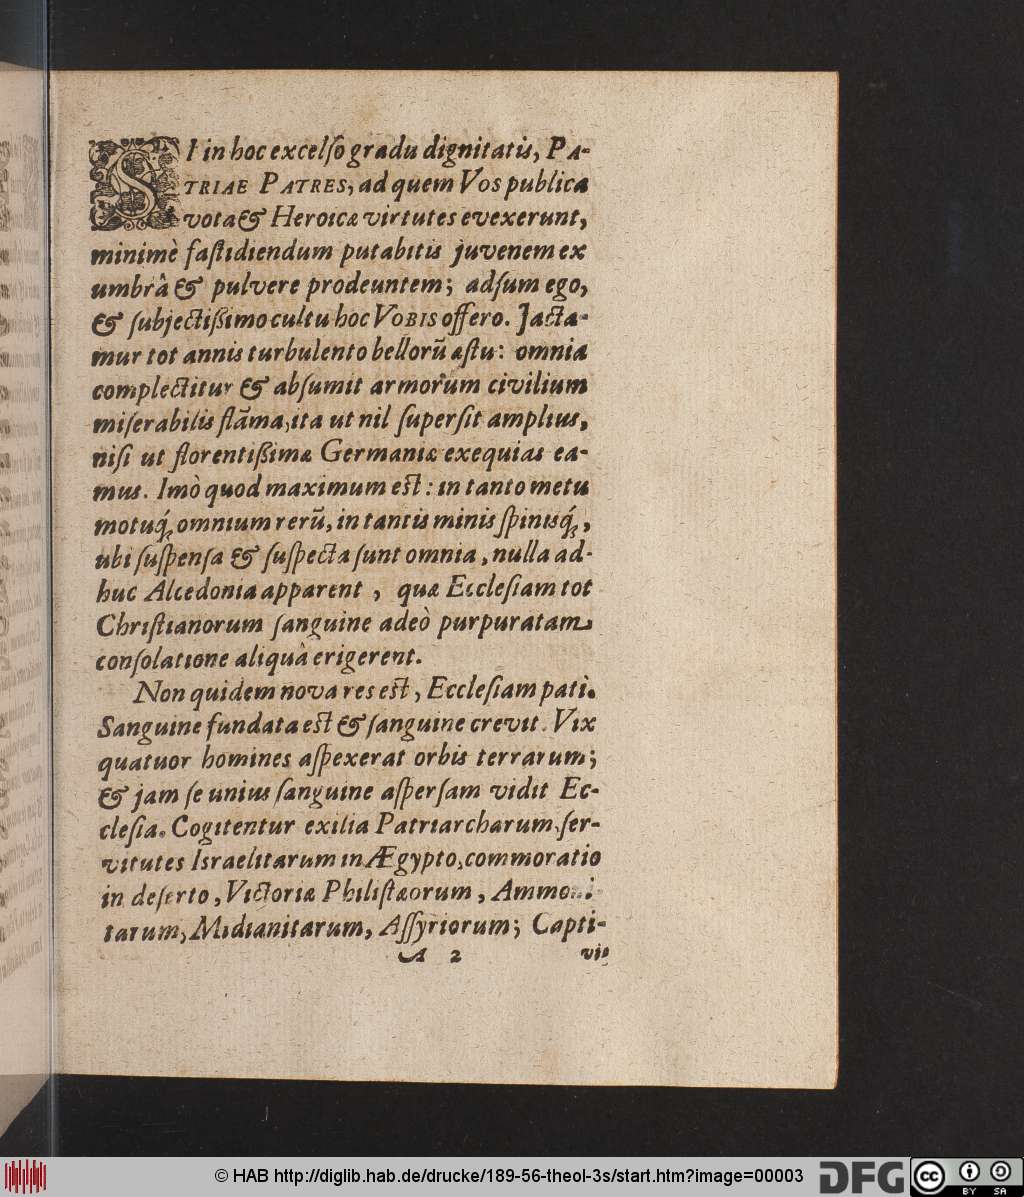 SI in hoc excelſo gradu dignitatis, PA-
TRIAE PATRES, ad quem Vos publica
vota & Heroicæ virtutes evexerunt,
minimè faſtidiendum putabitis juvenem ex
umbrâ & pulvere prodeuntem; adſum ego,
& ſubjectißimo cultu hoc VOBIS offero. Jacta-
mur tot annis turbulento bellorũ æſtu: omnia
complectitur & abſumit armorum civilium
miſerabilis flãma, ita ut nil ſuperſit amplius,
niſi ut florentißimæ Germaniæ exequias ea-
mus. Imò quod maximum eſt: in tanto metu
motuq́; omnium rerũ, in tantis minis ſpinisq́;,
ubi ſuſpenſa & ſuſpecta ſunt omnia, nulla ad-
huc Alcedonia apparent, quæ Eccleſiam tot
Chriſtianorum ſanguine adeò purpuratam
conſolatione aliquâ erigerent.
Non quidem nova res eſt, Eccleſiam pati.
Sanguine fundata eſt & ſanguine crevit. Vix
quatuor homines aſpexerat orbis terrarum;
& jam ſe unius ſanguine aſperſam vidit Ec-
cleſia. Cogitentur exilia Patriarcharum, ſer-
vitutes Israelitarum in Ægypto, commoratio
in deſerto, Victoriæ Philiſtæorum, Ammoni-
tarum, Midianitarum, Aſſyriorum; Capti-
A 2 vi-
© HAB http://diglib.hab.de/drucke/189-56-theol-3s/start.htm?image=00003 DFG cc BY SA